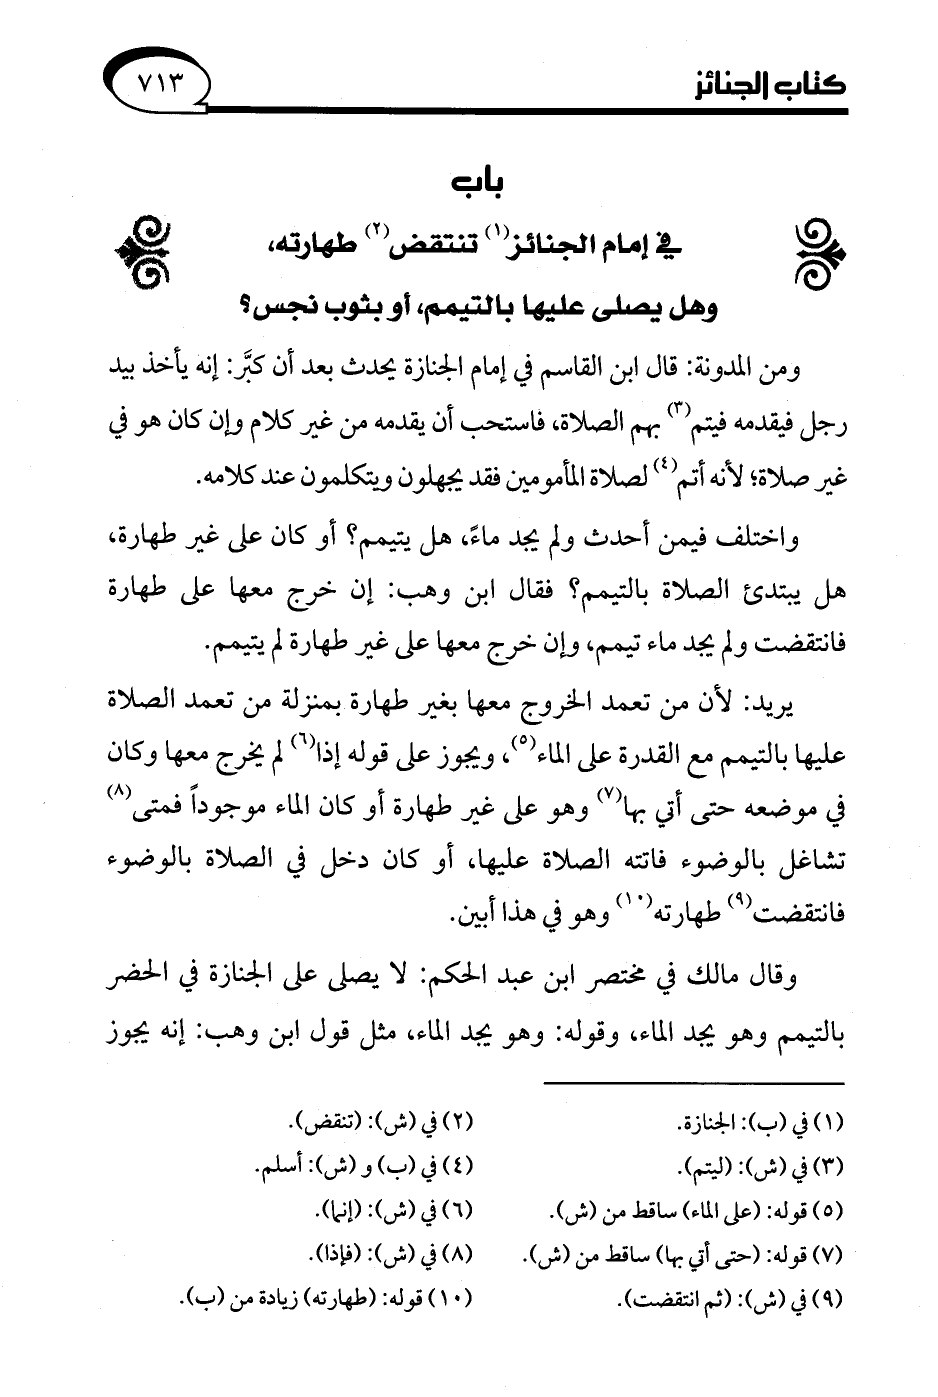 كتاب الجنائز
٧١٣
باب
في إمام الجنائز(١) تنتقض(٢) طهارته،
وهل يصلى عليها بالتيمم، أو بثوب نجس؟
ومن المدونة: قال ابن القاسم في إمام الجنازة يحدث بعد أن كبَّر: إنه يأخذ بيد
رجل فيقدمه فيتم(٣) بهم الصلاة، فاستحب أن يقدمه من غير كلام وإن كان هو في
غير صلاة؛ لأنه أتم(٤) لصلاة المأمومين فقد يجهلون ويتكلمون عند كلامه.
واختلف فيمن أحدث ولم يجد ماءً، هل يتيمم؟ أو كان على غير طهارة،
هل يبتدئ الصلاة بالتيمم؟ فقال ابن وهب: إن خرج معها على طهارة
فانتقضت ولم يجد ماء تيمم، وإن خرج معها على غير طهارة لم يتيمم.
يريد: لأن من تعمد الخروج معها بغير طهارة بمنزلة من تعمد الصلاة
عليها بالتيمم مع القدرة على الماء(٥)، ويجوز على قوله إذا(٦) لم يخرج معها وكان
في موضعه حتى أتي بها(٧) وهو على غير طهارة أو كان الماء موجوداً فمتى(٨)
تشاغل بالوضوء فاتته الصلاة عليها، أو كان دخل في الصلاة بالوضوء
فانتقضت(٩) طهارته(١٠) وهو في هذا أبين.
وقال مالك في مختصر ابن عبد الحكم: لا يصلى على الجنازة في الحضر
بالتيمم وهو يجد الماء، وقوله: وهو يجد الماء، مثل قول ابن وهب: إنه يجوز
(١) في (ب): الجنازة.
(٢) في (ش): (تنقض).
(٣) في (ش): (ليتم).
(٤) في (ب) و (ش): أسلم.
(٥) قوله: (على الماء) ساقط من (ش).
(٦) في (ش): (إنما).
(٧) قوله: (حتى أتي بها) ساقط من (ش).
(٨) في (ش): (فإذا).
(٩) في (ش): (ثم انتقضت).
(١٠) قوله: (طهارته) زيادة من (ب).